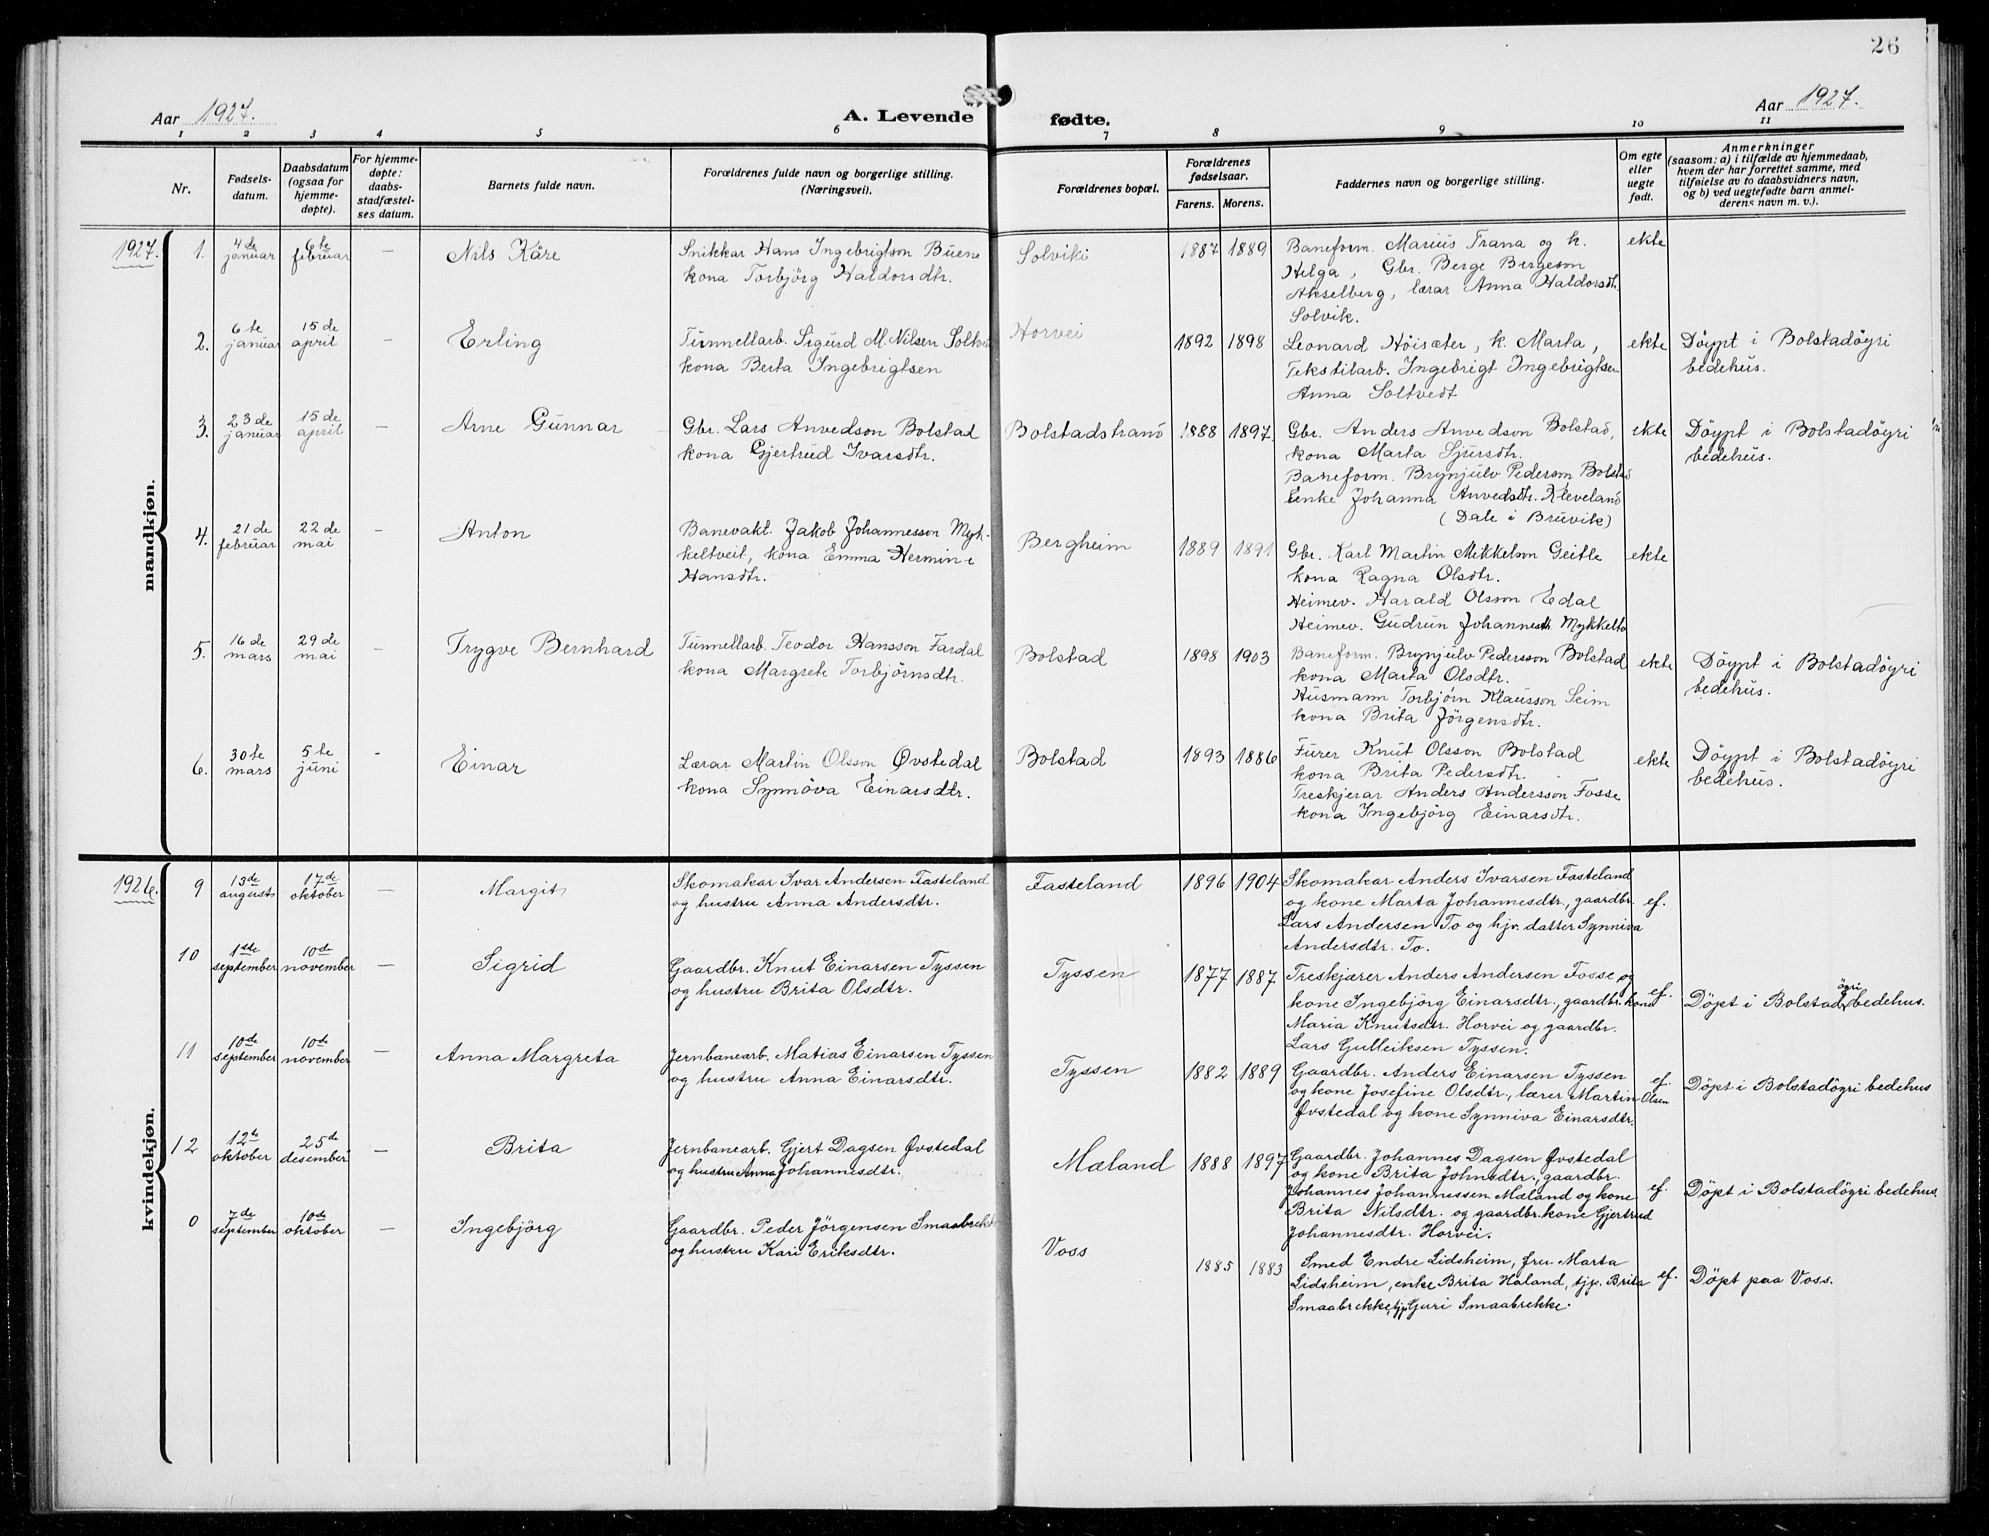 26
Aar 1927.
A. Levende
fødte.
Aar 1927.
1 2 3 4 5 6 7 8 9 10 11
Nr.
Fødsels-
datum.
Daabsdatum
(ogsaa for
hjemme-
døpte).
For hjemme-
døpte:
daabs-
stadfæstel-
ses datum.
Barnets fulde navn.
Forældrenes fulde navn og borgerlige stilling.
(Næringsvei).
Forældrenes bopæl.
Forældrenes
fødselsaar.
Farens. Morens.
Faddernes navn og borgerlige stilling.
Om egte
eller
uegte
født.
Anmerkninger
(saasom: a) i tilfælde av hjemmedaab,
hvem der har forrettet samme, med
tilføielse av to daabsvidners navn,
og b) ved uegtefødte barn anmel-
derens navn m. v.).
mandkjøn.
1927.
1.
4de
januar
6te
februar
—
Nils Kåre
Snikkar Hans Ingebrigtson Buene
kona Torbjörg Haldorsdtr.
Solviki
1887 1889
Baneform. Marius Trana og k.
Helga, Gbr. Berge Bergeson
Akselberg, lærar Anna Haldorsdtr.
Solvik.
ekte
2.
6te
januar
15de
april
—
Erling
Tunnellarb. Sigurd M. Nilsen Soltve
kona Berta Ingebrigtsen
Horvei
1892 1898
Leonard Höisæter, k. Marta,
Tekstilarb. Ingebrigt Ingebrigtsen
Anna Soltvedt
ekte
Döypt i Bolstadöyri
bedehus.
3.
23de
januar
15de
april
—
Arne Gunnar
Gbr. Lars Anvedson Bolstad
kona Gjertrud Ivarsdtr.
Bolstadstrand
1888 1897.
Gbr. Anders Anvedson Bolstad,
kona Marta Sjursdtr.
Baneform. Brynjulv Pederson Bolstad
Enke Johanna Anvedsdtr. Kleveland
(Dale i Bruvik)
ekte
Döypt i Bolstadöyri
bedehus.
4.
21de
februar
22de
mai
—
Anton
Banevakt. Jakob Johannesson Myk-
keltveit, kona Emma Hermine
Hansdtr.
Bergheim
1889 1891
Gbr. Karl Martin Mikkelson Geitle
kona Ragna Olsdtr.
Heimev. Harald Olson Edal
Heimev. Gudrun Johannesdtr. Mykkeltv
ekte
5.
16de
mars
29de
mai
—
Trygve Bernhard
Tunnellarb. Teodor Hansson Fardal
kona Margrete Torbjörnsdtr.
Bolstad
1898 1903
Baneform. Brynjulv Pedersson Bolstad
kona Marta Olsdtr.
Husmann Torbjörn Klausson Seim
kona Brita Jörgensdtr.
ekte
Döypt i Bolstadöyri
bedehus.
6.
30te
mars
5te
juni
-
Einar
Lærar Martin Olsson Øvstedal
kona Synnöva Einarsdtr.
Bolstad
1893 1886
Furer Knut Olsson Bolstad
kona Brita Pedersdtr.
Treskjerar Anders Andersson Fosse
kona Ingebjörg Einarsdtr.
ekte
Döypt i Bolstadöyri
bedehus.
kvindekjøn.
1926.
9
13de
august
17de
oktober
—
Margit
Skomakar Ivar Andersen Fasteland
og hustru Anna Andersdtr.
Fasteland
1896 1904
Skomakar Anders Ivarsen Fasteland
og kone Marta Johannesdtr., gaardbr.
Lars Andersen To og hjv. datter Synniva
Andersdtr. To.
ef.
10
1ste
september
10de
november
—
Sigrid
Gaardbr. Knut Einarsen Tyssen
og hustru Brita Olsdtr.
Tyssen
1877 1887
Treskjærer Anders Andersen Fosse og
kone Ingebjörg Einarsdtr., gaardbr. kona
Maria Knutsdtr. Horvei og gaardbr.
Lars Gulleiksen Tyssen.
ef.
Döpt i Bolstadöyri bedehus.
11
10de
september
10de
november
—
Anna Margreta
Jernbanearb. Matias Einarsen Tyssen
og hustru Anna Einarsdtr.
Tyssen
1882 1889
Gaardbr. Anders Einarsen Tyssen
og kone Josefine Olsdtr., lærer Martin Olsen
Øvstedal og kone Synniva Einarsdtr.
ef.
Döpt i Bolstadöyri bedehus
12
12te
oktober
25de
desember
—
Brita
Jernbanearb. Gjert Dagsen Øvstedal
og hustru Anna Johannesdtr.
Mæland
1888 1897
Gaardbr. Johannes Dagsen Øvstedal
og kone Brita Johnsdtr., gaardbr.
Johannes Johannessen Mæland og kone
Brita Nilsdtr. og gaardbr. kone Gjertrud
Johannesdtr. Horvei.
ef.
Döpt i Bolstadöyri bedehus.
0
7de
september
10de
oktober
—
Ingebjörg
Gaardbr. Peder Jörgensen Smaabrekke
og hustru Kari Eriksdtr.
Voss
1885 1883
Smed Endre Lidsheim, fru Marta
Lidsheim, enke Brita Haland, tjp. Brita
Smaabrekke, tjp. Guri Smaabrekke.
ef.
Döpt paa Voss.